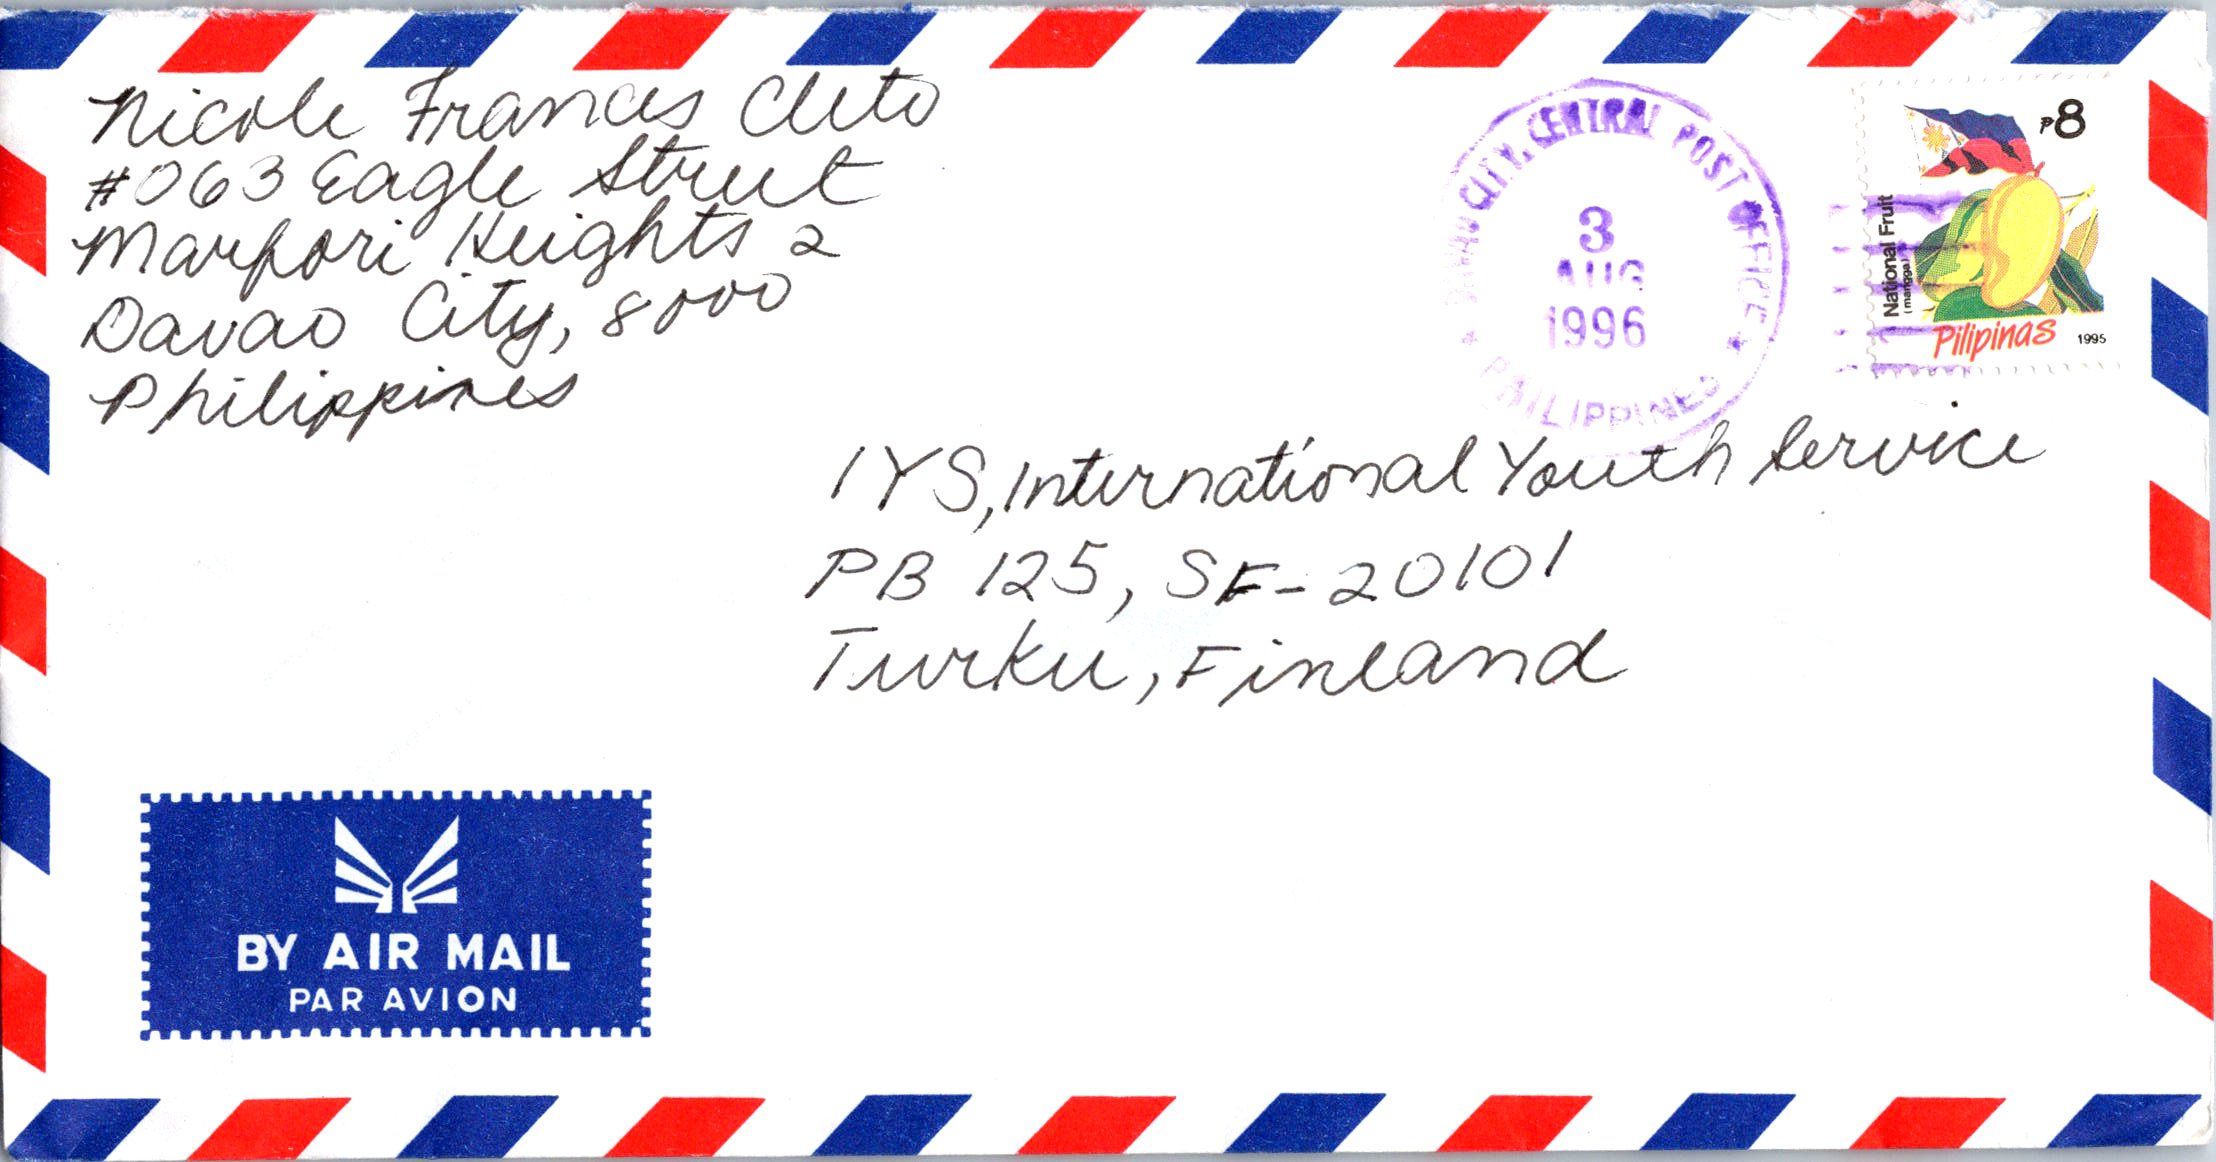 Nicole Frances Cleto
#063 Eagle Street
Marfori Heights 2
Davao City, 8000
Philippines
CITY, CENTRAL POST OFFICE
3
AUG
1996
PHILIPPINES
₱8
National Fruit
(mangga)
Pilipinas 1995
IYS, International Youth Service
PB 125, SF-20101
Turku, Finland
BY AIR MAIL
PAR AVION